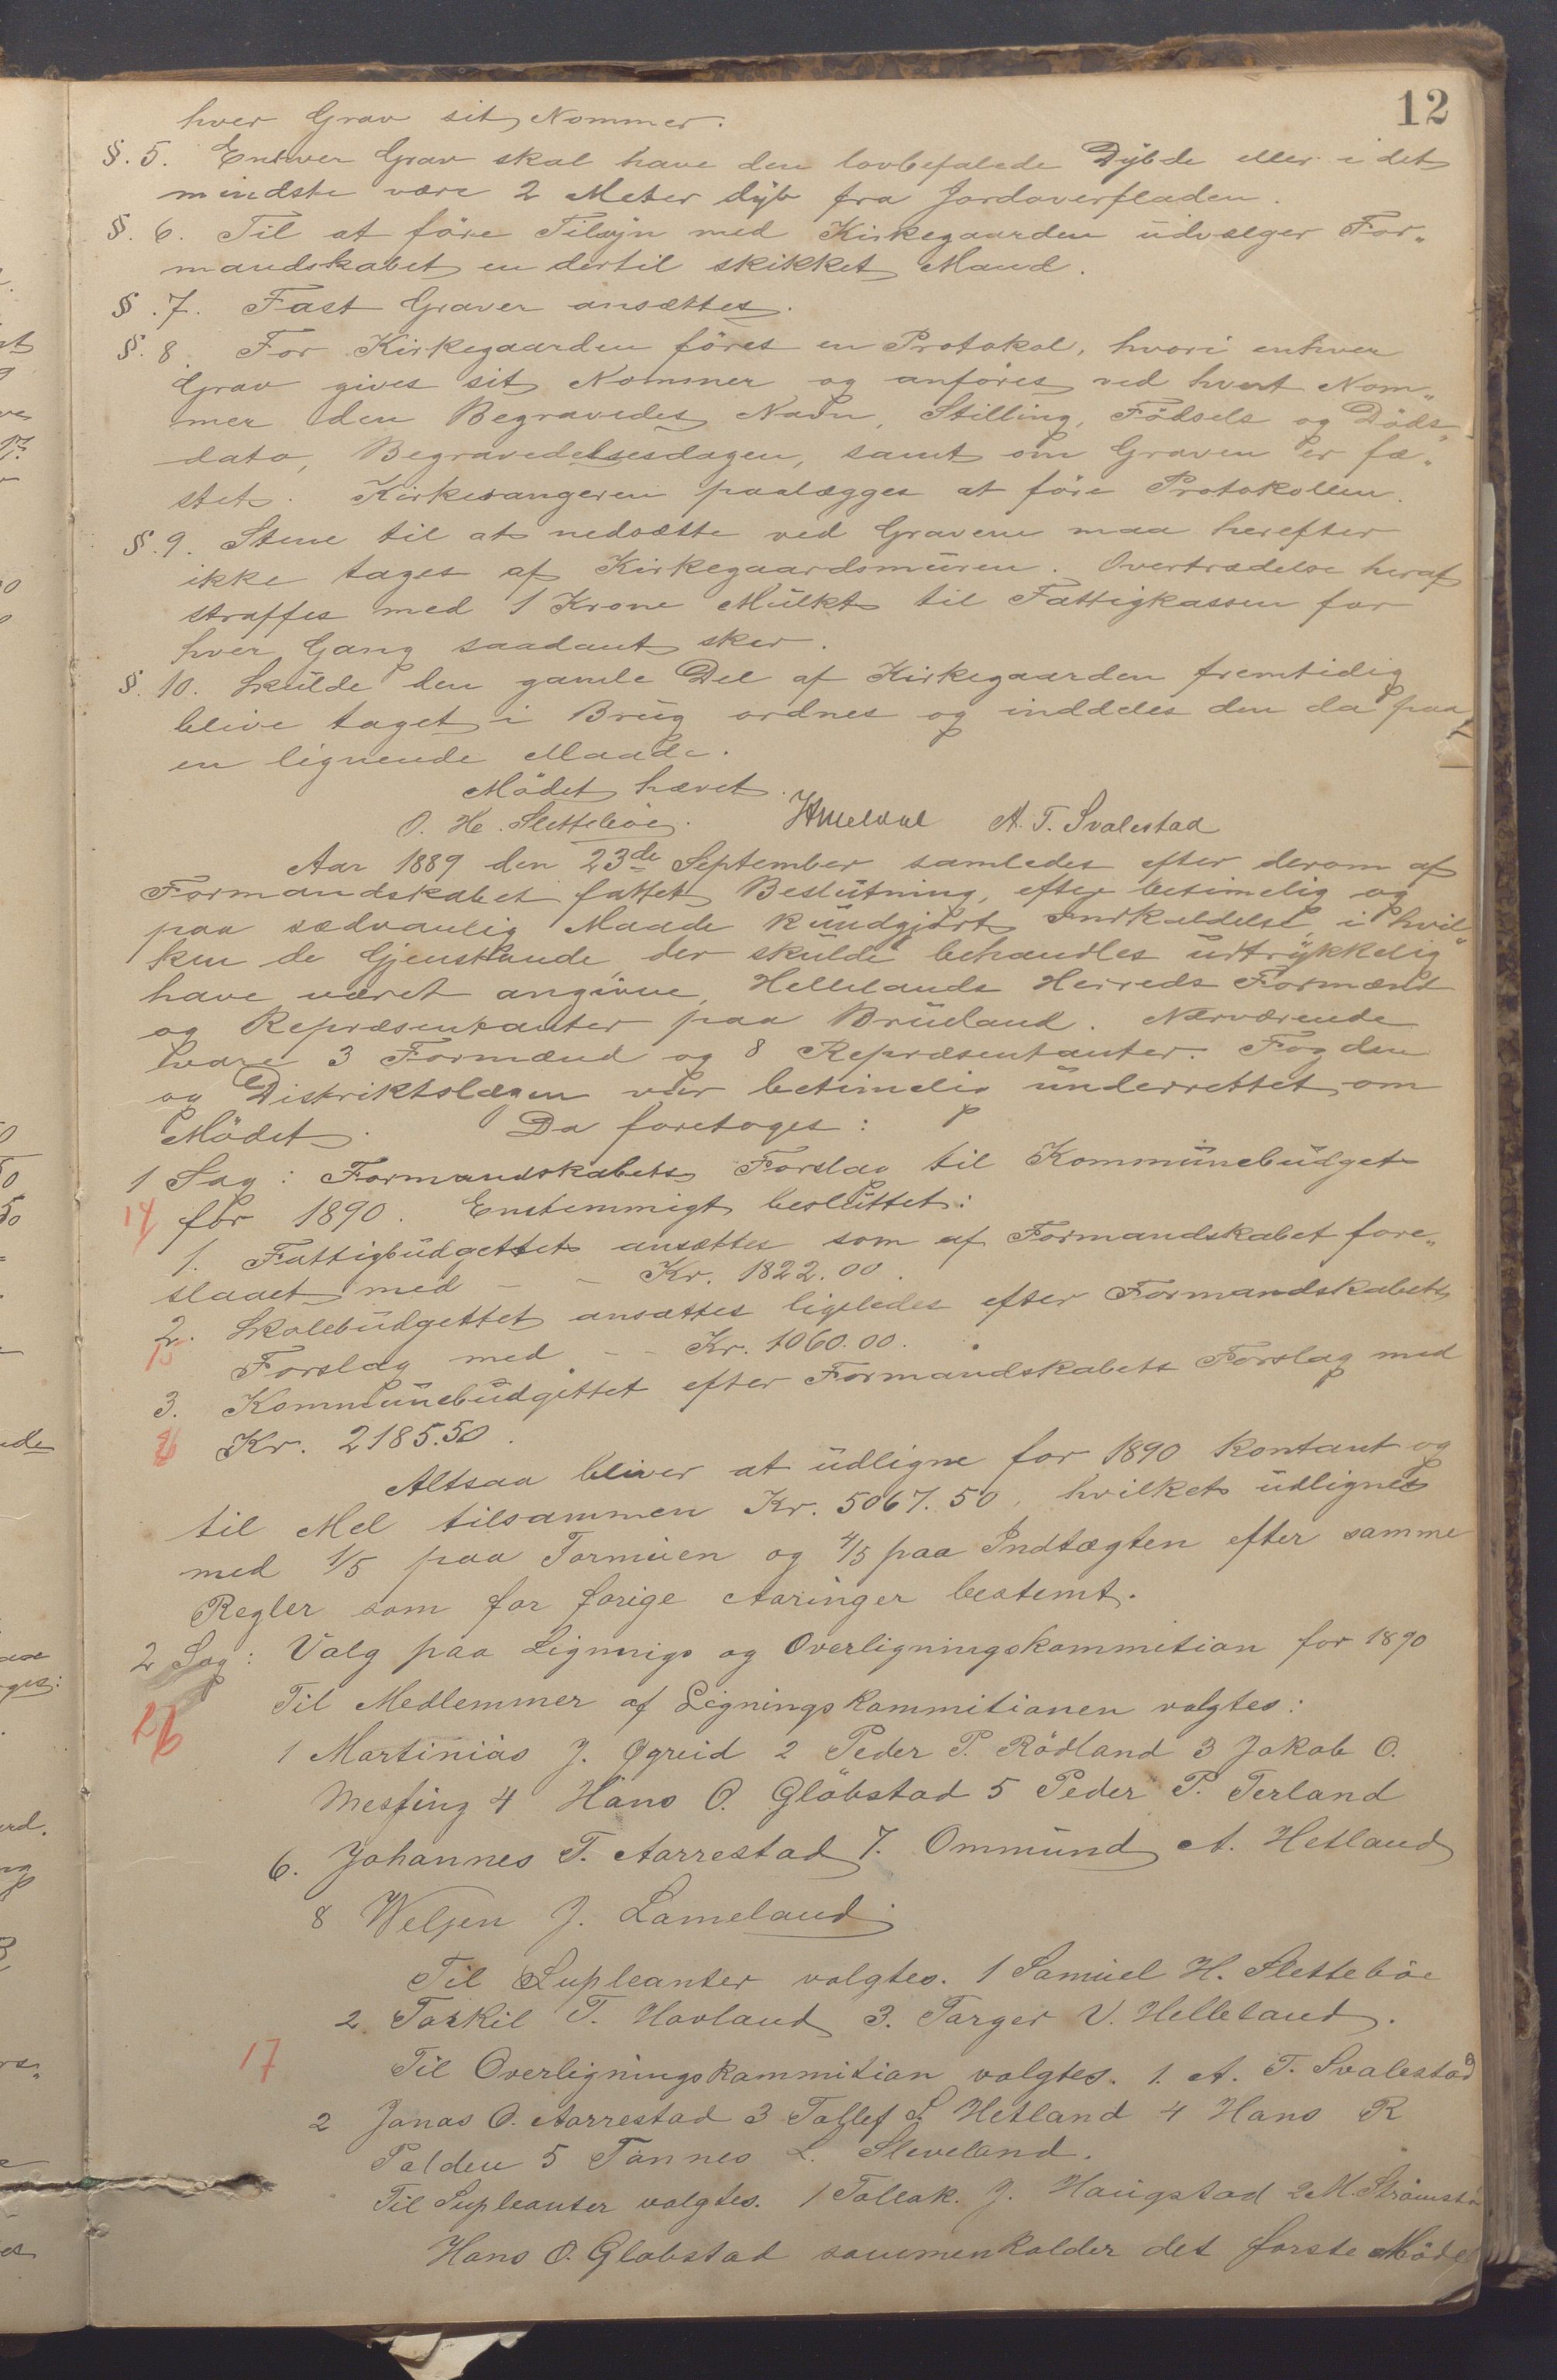 12
hver Grav sit Nommer.
§. 5. Enhver Grav skal have den lovbefalede Dÿbde eller i det
mindste være 2 Meter dÿb fra Jordoverfladen.
§. 6. Til at före Tilsÿn med Kirkegaarden üdvælger For„
mandskabet en dertil skikket Mand.
§. 7. Fast Graver ansættes.
§. 8. For Kirkegaarden föres en Protokol, hvori enhver
Grav gives sit Nommer og anföres ved hvert Nom„
mer den Begravedes Navn, Stilling, Födsels og Döds„
dato, Begravedelsesdagen, samt om Graven er fæ„
stet. Kirkesangeren paalægges at före Protokollen.
§. 9. Stene til at nedsætte ved Gravene maa herefter
ikke tages af Kirkegaardsmüren. Overtrædelse heraf
straffes med 1 Krone Mülkt til Fattigkassen for
hver Gang saadant sker.
§. 10. Skülde den gamle Del af Kirkegaarden fremtidig
blive taget i Brüg ordnes og inddeles den da paa
en lignende Maade.
Mödet hævet.
O. H. Sletteböe. A. T. Svalestad
Aar 1889 den 23de September samledes efter derom af
Formandskabet fattet Beslütning, efter betimelig og
paa sædvanlig Maade kündgjört Indkaldelse, i hvil„
ken de Gjenstande, der skülde behandles üdtrÿkkelig
have været angivne, Hellelands Herreds Formænd
og Repræsentanter paa Brüeland. Nærværende
vare 3 Formænd og 8 Repræsentanter. Fogden
og Distriktslægen var betimelig ünderrettet om
Mödet. Da foretoges:
1 Sag: Formandskabets Forslag til Kommünebüdget
14 for 1890. Enstemmigt beslüttet:
1. Fattigbüdgettet ansættes som af Formandskabet fore„
slaaet med - - Kr. 1822.00.
2. Skolebüdgettet ansættes ligeledes efter Formandskabets
15 Forslag med - - Kr. 1060.00.
3. Kommünebüdgettet efter Formandskabets Forslag med
Kr. 2185.50.
Altsaa bliver at üdligne for 1890 kontant og
til Mel tilsammen Kr. 5067.50, hvilket üdlignes
med 1/5 paa Formüen og 4/5 paa Indtægten efter samme
Regler som for forige Aaringer bestemt.
2 Sag: Valg paa Lignings og Overligningskommitian for 1890
Til Medlemmer af Ligningskommitianen valgtes:
1 Martinius J. Øgreid 2 Peder P. Rödland 3 Jakob O.
Mesfing 4 Hans O. Glöbstad 5 Peder P. Terland
6. Johannes T. Aarrestad 7. Ommünd A. Hetland
8 J. Lameland.
Til Supleanter valgtes. 1 Samüel H. Sletteböe
2 Torkil T. Hovland 3. Torger V. Helleland.
17 Til Overligningskommitian valgtes. 1. A. T. Svalestad
2 Jonas O. Aarrestad 3 Tollef S. Hetland 4 Hans R
5 Tönnes L. Sleveland.
Til Supleanter valgtes. 1 Tollak. J. Haügstad 2 M.
Hans O. Glöbstad sammenkalder det forste Möde